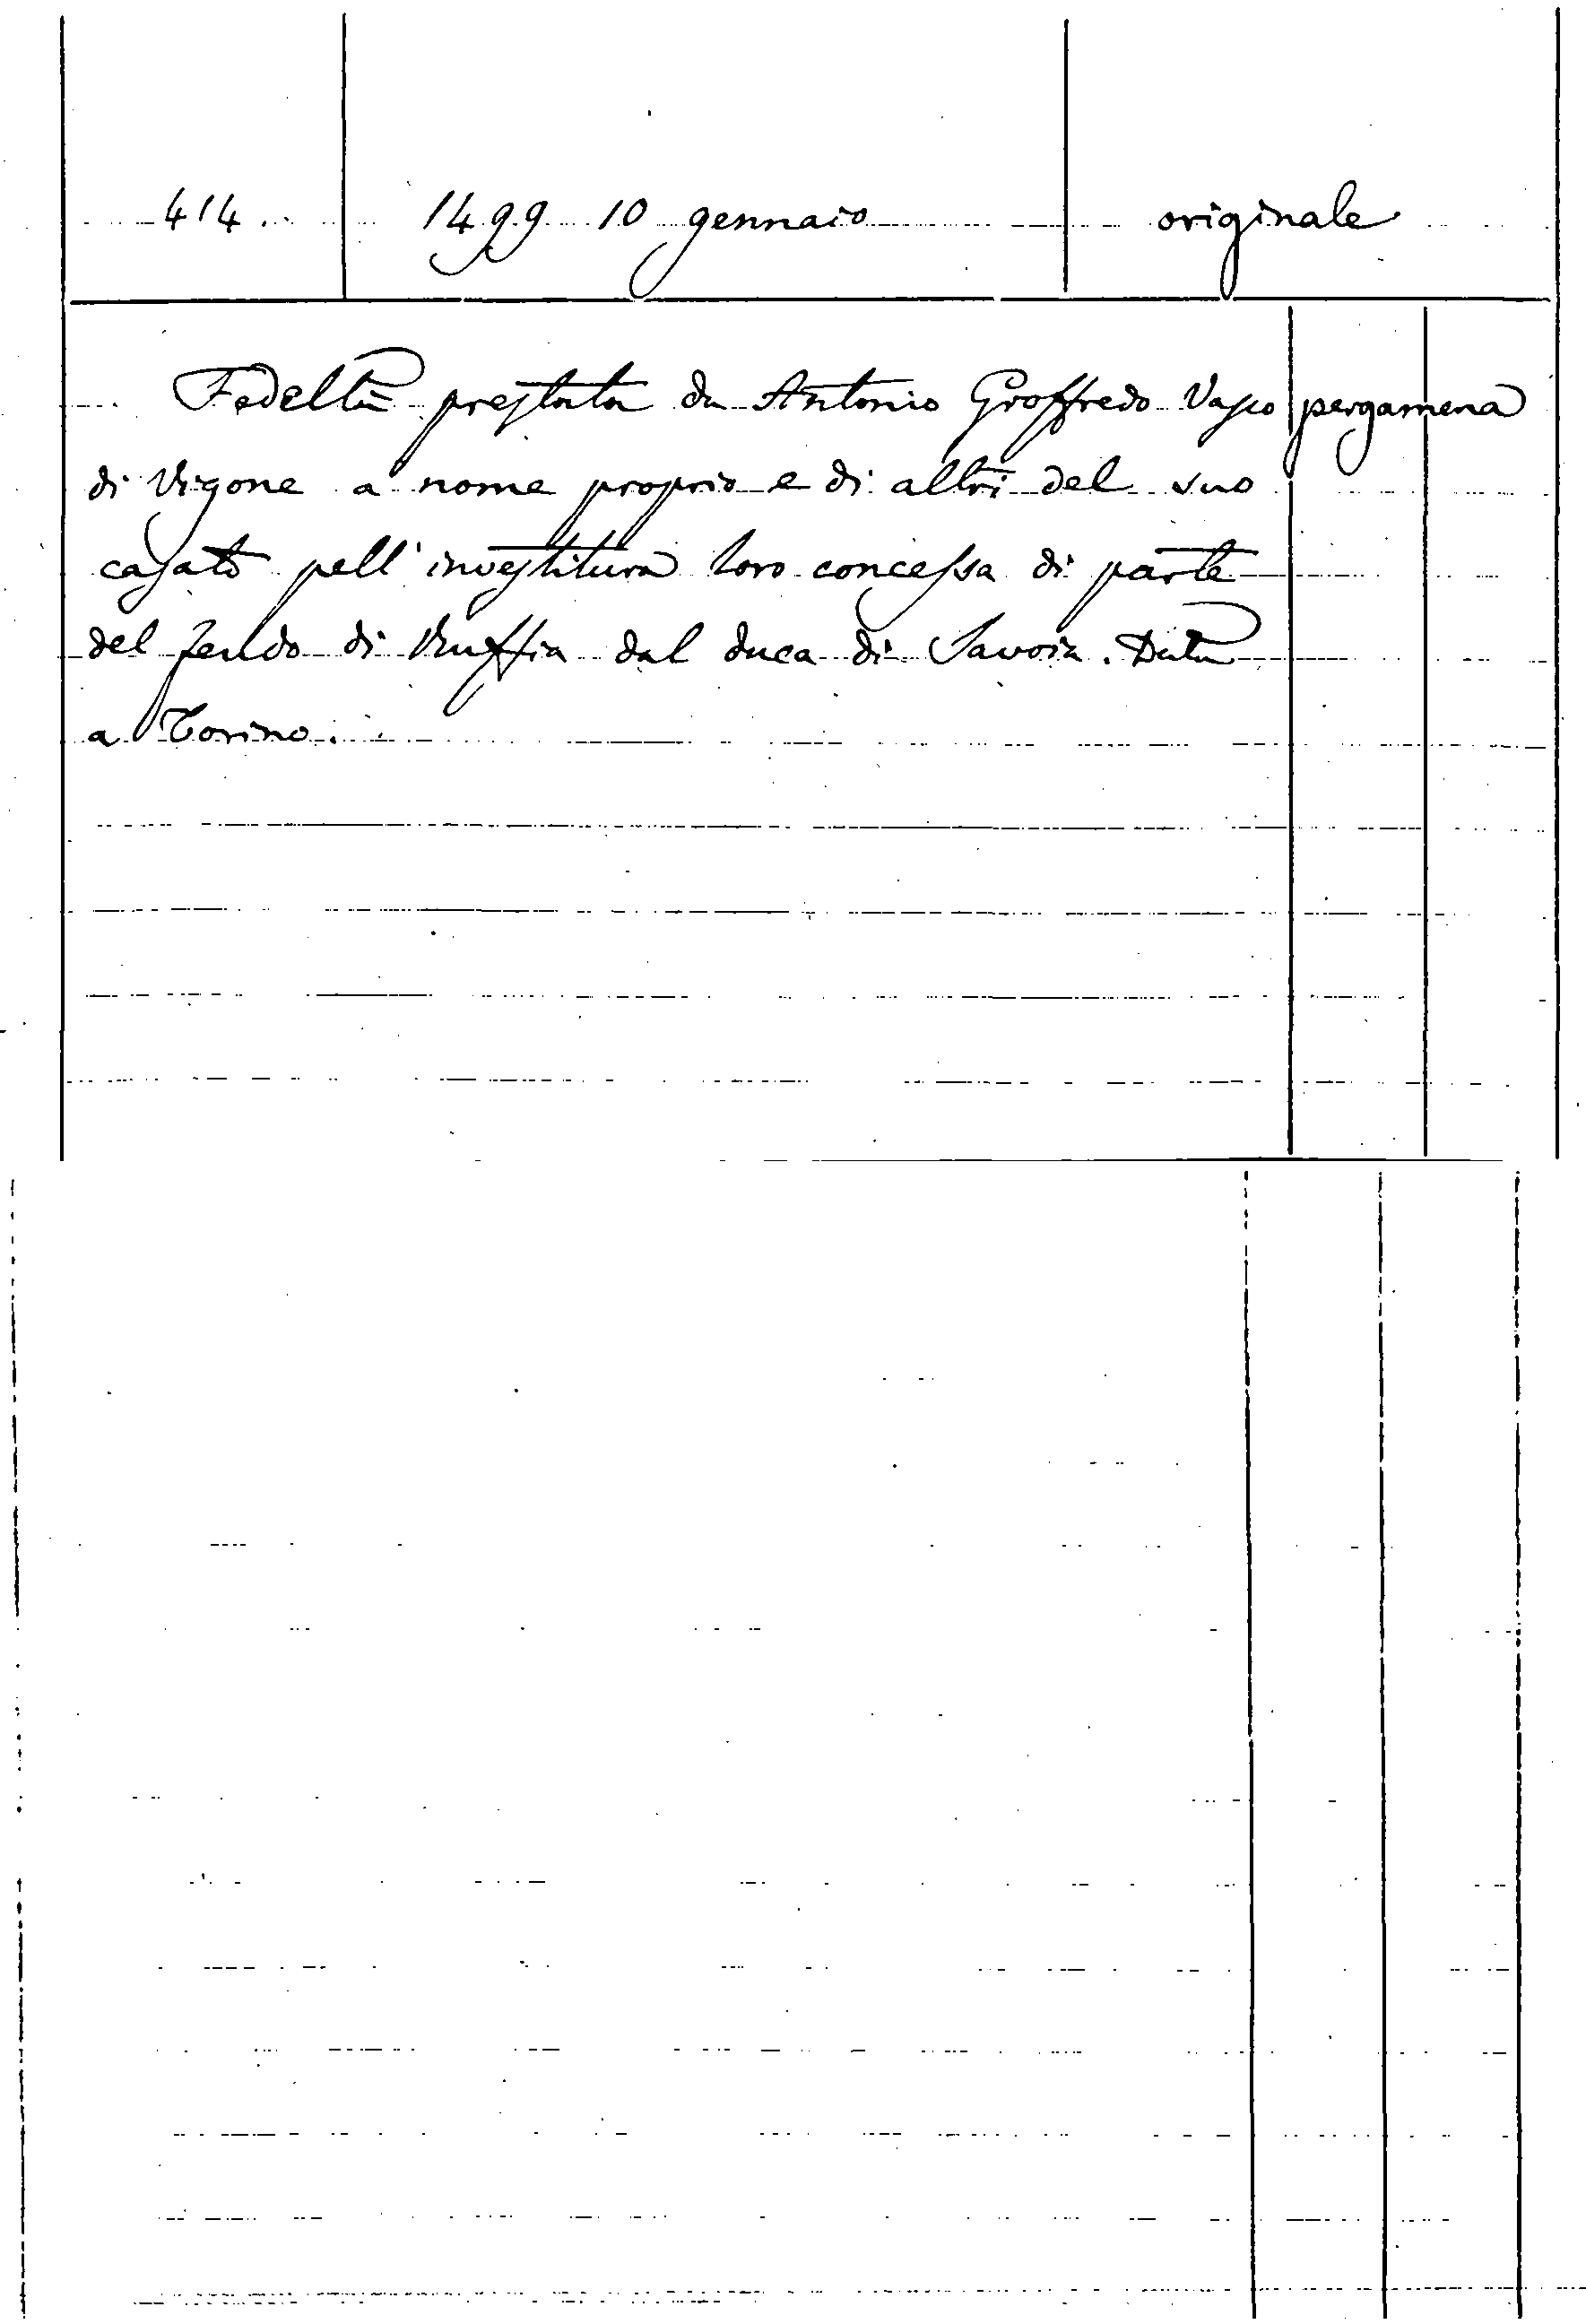 414. 1499 10 gennaio originale
Fedeltà prestata da Antonio Groffredo Vasco pergamena
di Vigone a nome proprio e di altri del suo
casato pell'investitura loro concessa di parte
del feudo di Ruffia dal duca di Savoia. Data
a Torino.